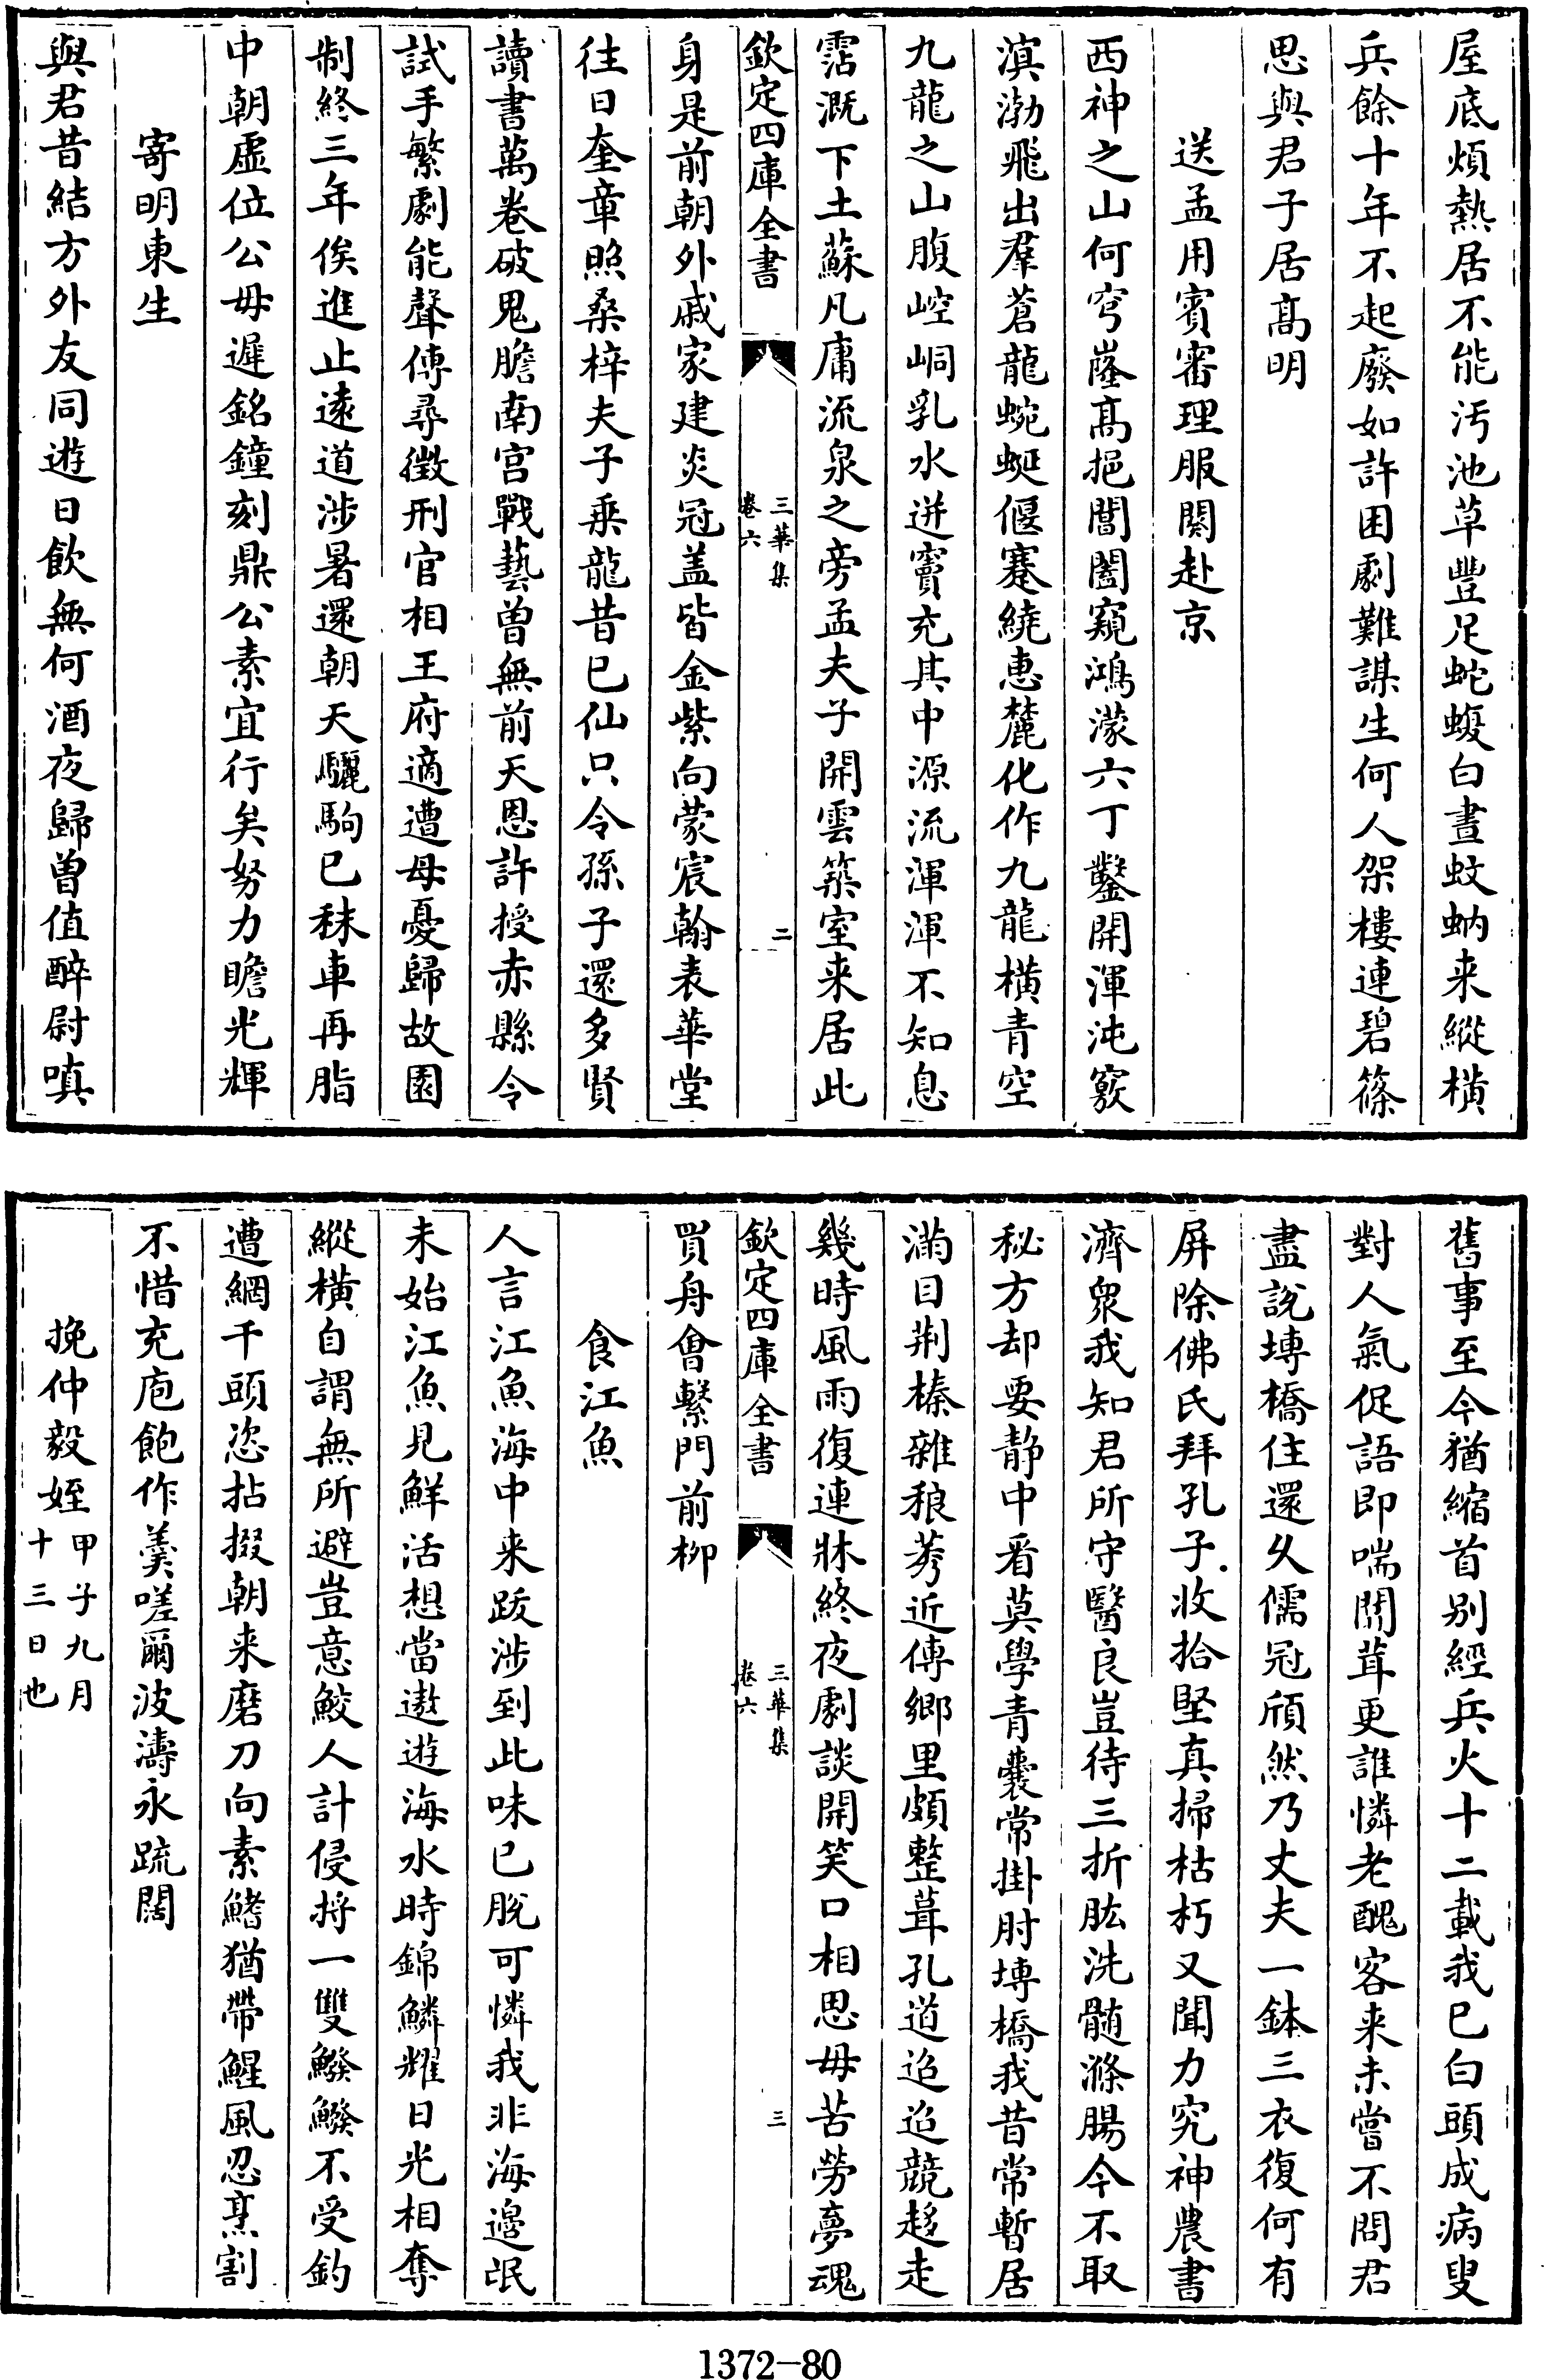 屋底煩熱居不能汚池草豐足蛇蝮白晝蚊蚋来縱橫
兵餘十年不起廢如許困劇難謀生何人架樓連碧篠
思與君子居髙明
送孟用賓審理服闋赴京
西神之山何穹窿髙挹閶闔窺鴻濛六丁鑿開渾沌竅
溟渤飛出羣蒼龍蜿蜒偃蹇繞惠麓化作九龍橫青空
九龍之山腹崆峒乳水迸竇充其中源流渾渾不知息
霑溉下土蘇凡庸流泉之旁孟夫子開雲築室来居此
欽定四庫全書
三華集
卷六
二
身是前朝外戚家建炎冠盖皆金紫向蒙宸翰表華堂
往日奎章照桑梓夫子乗龍昔已仙只令孫子還多賢
讀書萬卷破鬼膽南宫戰藝曽無前天恩許授赤縣令
試手繁劇能聲傳尋徴刑官相王府適遭母憂歸故園
制終三年俟進止逺道涉暑還朝天驪駒已秣車再脂
中朝虚位公毋遲銘鐘刻鼎公素宜行矣努力瞻光輝
寄明東生
與君昔結方外友同遊日飲無何酒夜歸曽值醉尉嗔
舊事至今猶縮首别經兵火十二載我已白頭成病叟
對人氣促語即喘闒茸更誰憐老醜客来未嘗不問君
盡說塼橋住還乆儒冠頎然乃丈夫一鉢三衣復何有
屏除佛氏拜孔子收拾堅真掃枯朽又聞力究神農書
濟衆我知君所守醫良豈待三折肱洗髓滌腸今不取
秘方却要静中看莫學青囊常掛肘塼橋我昔常暫居
滿目荆榛雜稂莠近傳鄉里頗整葺孔道迢迢競趍走
幾時風雨復連牀終夜劇談開笑口相思毋苦勞夢魂
欽定四庫全書
三華集
卷六
三
買舟會繫門前柳
食江魚
人言江魚海中来跋涉到此味已脫可憐我非海邉氓
未始江魚見鮮活想當遨遊海水時錦鱗耀日光相奪
縱橫自謂無所避豈意鮫人計侵捋一雙鱍鱍不受釣
遭網千頭恣拈掇朝来磨刀向素鰭猶帶鯹風忍烹割
不惜充庖飽作羮嗟爾波濤永疏闊
挽仲毅姪
甲子九月
十三日也
1372-80